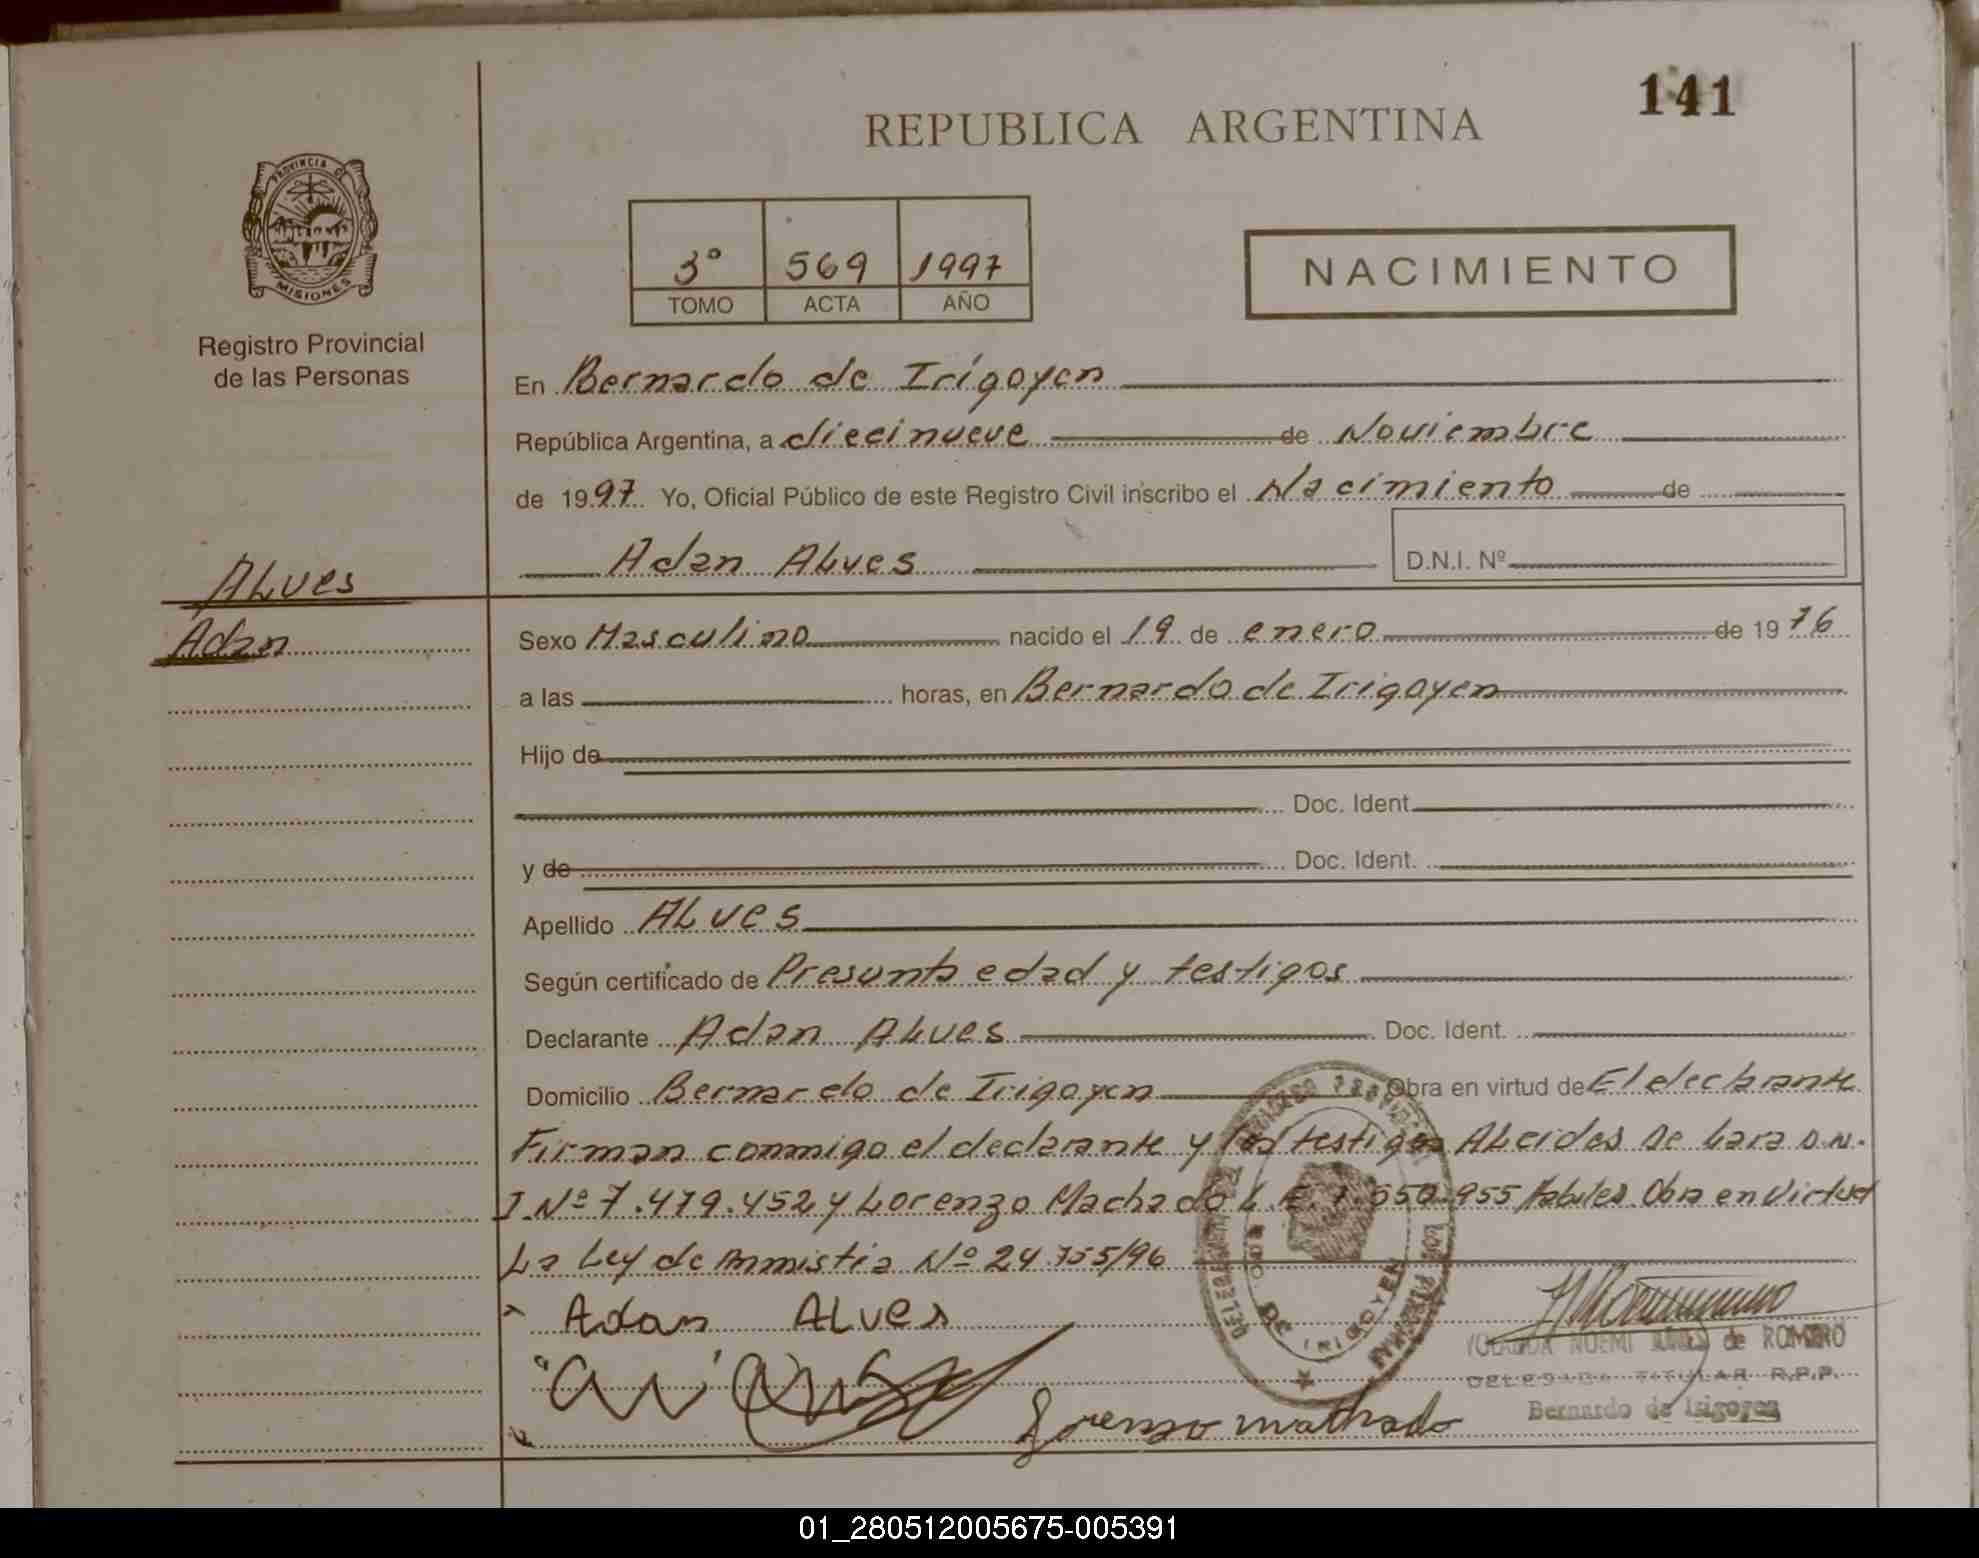 141
REPUBLICA ARGENTINA
PROVINCIA DE
MISIONES
Registro Provincial
de las Personas
3° 569 1997
TOMO ACTA AÑO
NACIMIENTO
En Bernardo de Irigoyen
República Argentina, a diecinueve de Noviembre
de 1997 Yo, Oficial Público de este Registro Civil inscribo el Nacimiento de
Adan ALves D.N.I. Nº
ALves
Adan
Sexo Masculino nacido el 19 de enero de 1976
a las horas, en Bernardo de Irigoyen
Hijo de
Doc. Ident.
y de Doc. Ident.
Apellido ALves
Según certificado de Presunta edad y testigos
Declarante Adan ALves Doc. Ident.
Domicilio Bernardo de Irigoyen Obra en virtud de El declarante
Firman conmigo el declarante y los testigos ALcides De Lara D.N.
I. Nº 7.479.452 y Lorenzo Machado L.E. 7.550.955 habiles. Obra en Virtud
La Ley de Amnistia Nº 24.755/96
Adan ALves
Lorenzo machado
YOLANDA NOEMI de ROMERO
DELEGADA TITULAR R.P.P.
Bernardo de Irigoyen
DE IRIGOYEN
01_280512005675-005391